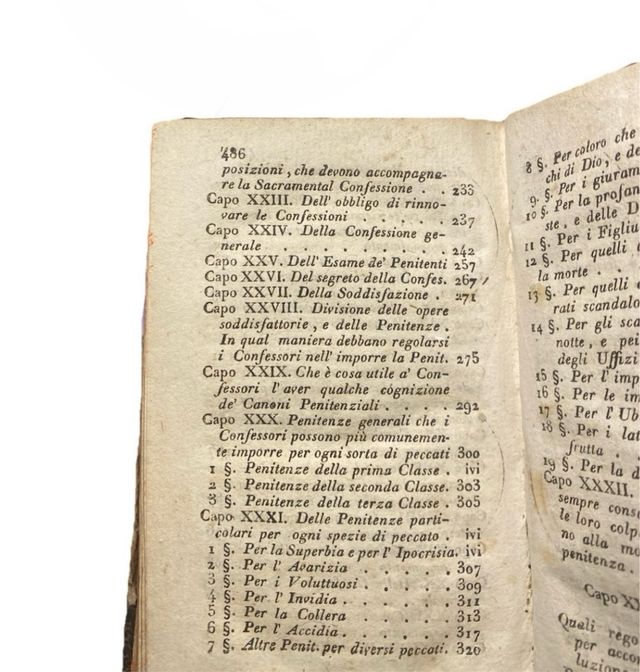 486
posizioni, che devono accompagna-
re la Sacramental Confessione . . 233
Capo XXIII. Dell' obbligo di rinno-
vare le Confessioni . . . . . 237
Capo XXIV. Della Confessione ge-
nerale . . . . . . . . . 242
Capo XXV. Dell' Esame de' Penitenti 257
Capo XXVI. Del segreto della Confes. 267
Capo XXVII. Della Soddisfazione . 271
Capo XXVIII. Divisione delle opere
soddisfattorie, e delle Penitenze .
In qual maniera debbano regolarsi
i Confessori nell' imporre la Penit. 275
Capo XXIX. Che è cosa utile a' Con-
fessori l' aver qualche cognizione
de' Canoni Penitenziali . . . . 292
Capo XXX. Penitenze generali che i
Confessori possono più comunemen-
te imporre per ogni sorta di peccati 300
1 §. Penitenze della prima Classe . ivi
2 §. Penitenze della seconda Classe. 303
3 §. Penitenze della terza Classe . 305
Capo XXXI. Delle Penitenze parti-
colari per ogni spezie di peccato . ivi
1 §. Per la Superbia e per l' Ipocrisia. ivi
2 §. Per l' Avarizia . . . . . 307
3 §. Per i Voluttuosi . . . . . 309
4 §. Per l' Invidia . . . . . . 311
5 §. Per la Collera . . . . . 313
6 §. Per l' Accidia . . . . . . 317
7 §. Altre Penit. per diversi peccati. 320
8 §. Per coloro che
chi di Dio, e de
9 §. Per i giuram
10 §. Per la profan
ste, e delle D
11 §. Per i Figliu
12 §. Per quelli
la morte . .
13 §. Per quelli
rati scandalo
14 §. Per gli sca
notte, e pei
degli Uffizi
15 §. Per l' imp
16 §. Per le im
17 §. Per l' Ub
18 §. Per i lat
frutta .
19 §. Per la d
Capo XXXII.
sempre cons
le loro colp
no alla mo
penitenza .
Capo XX
Quali rego
per acco
luzion